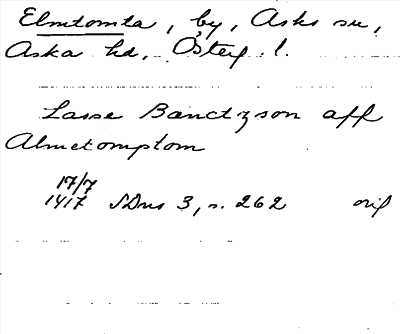 Elmtomta, by, Asks sn,
Aska hd, Österg. l.
Lasse Banctzson aff
Almetomptom
17/7
1417 SDns 3, s. 262 orig